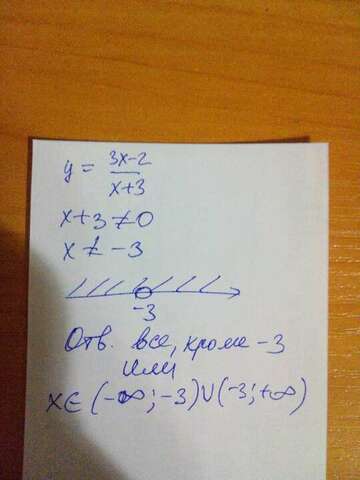 y = 3x-2 / x+3
x+3 ≠ 0
x ≠ -3
-3
Отв. все, кроме -3
или
x∈(-∞;-3)∪(-3;+∞)